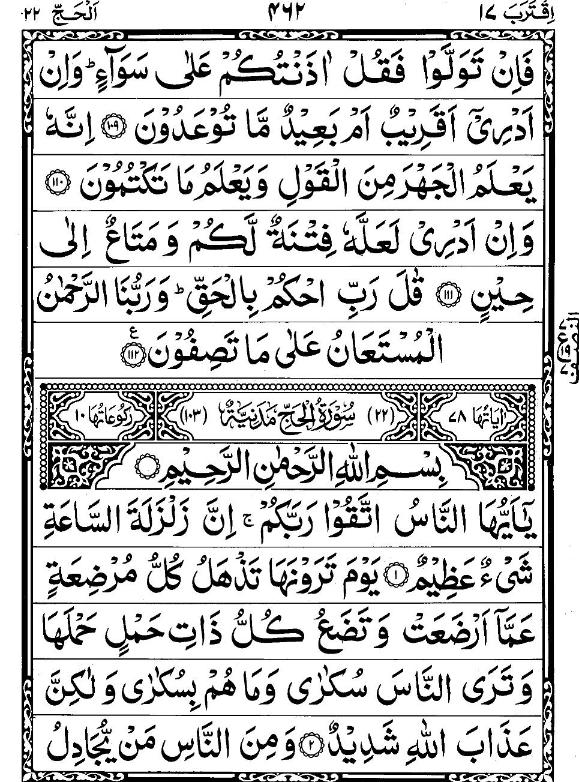 اِقْتَرَبَ ١٧ ٤٦٢ اَلْحَجّ ٢٢
فَاِنْ تَوَلَّوْا فَقُلْ اٰذَنْتُكُمْ عَلٰى سَوَآءٍ ؕ وَاِنْ
اَدْرِىْٓ اَقَرِيْبٌ اَمْ بَعِيْدٌ مَّا تُوْعَدُوْنَ ۝١٠٩ اِنَّهٗ
يَعْلَمُ الْجَهْرَ مِنَ الْقَوْلِ وَيَعْلَمُ مَا تَكْتُمُوْنَ ۝١١٠
وَاِنْ اَدْرِىْ لَعَلَّهٗ فِتْنَةٌ لَّكُمْ وَ مَتَاعٌ اِلٰى
حِيْنٍ ۝١١١ قٰلَ رَبِّ احْكُمْ بِالْحَقِّ ؕ وَرَبُّنَا الرَّحْمٰنُ
الْمُسْتَعَانُ عَلٰى مَا تَصِفُوْنَ ۝١١٢ ع
النصف
اٰيَاتُهَا ٧٨ (٢٢) سُوْرَةُ الْحَجِّ مَدَنِيَّةٌ (١٠٣) رُكُوْعَاتُهَا ١٠
بِسْمِ اللّٰهِ الرَّحْمٰنِ الرَّحِيْمِ ۝
يٰۤاَيُّهَا النَّاسُ اتَّقُوْا رَبَّكُمْ ۚ اِنَّ زَلْزَلَةَ السَّاعَةِ
شَىْءٌ عَظِيْمٌ ۝١ يَوْمَ تَرَوْنَهَا تَذْهَلُ كُلُّ مُرْضِعَةٍ
عَمَّاۤ اَرْضَعَتْ وَ تَضَعُ كُلُّ ذَاتِ حَمْلٍ حَمْلَهَا
وَ تَرَى النَّاسَ سُكٰرٰى وَمَا هُمْ بِسُكٰرٰى وَ لٰكِنَّ
عَذَابَ اللّٰهِ شَدِيْدٌ ۝٢ وَمِنَ النَّاسِ مَنْ يُّجَادِلُ